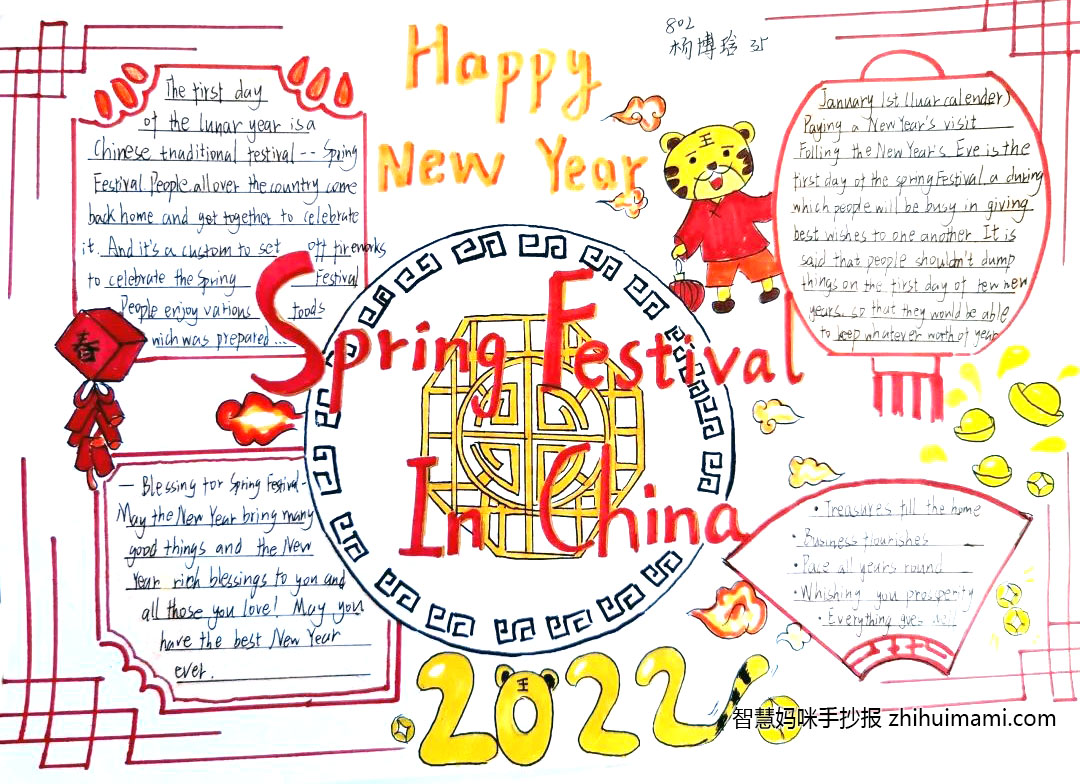 802
杨博晗 35
Happy
New Year
The first day
of the lunar year is a
Chinese traditional festival -- Spring
Festival. People all over the country come
back home and get together to celebrate
it. And it's a custom to set off fireworks
to celebrate the Spring Festival
People enjoy various foods
which was prepared ...
January 1st (luar calender)
Paying a New Year's visit
Folling the New Year's Eve is the
first day of the spring Festival. a during
which people will be busy in giving
best wishes to one another. It is
said that people shouldn't dump
things on the first day of few new
years. so that they would be able
to keep whatever worth of year
春
王
Spring Festival
In China
— Blessing for Spring Festival-
May the New Year bring many
good things and the New
Year rich blessings to you and
all those you love! May you
have the best New Year
ever.
• Treasures fill the home
• Business flourishes
• Pace all years round
• Whishing you prosperity
• Everything goes well
2022
王
智慧妈咪手抄报 zhihuimami.com